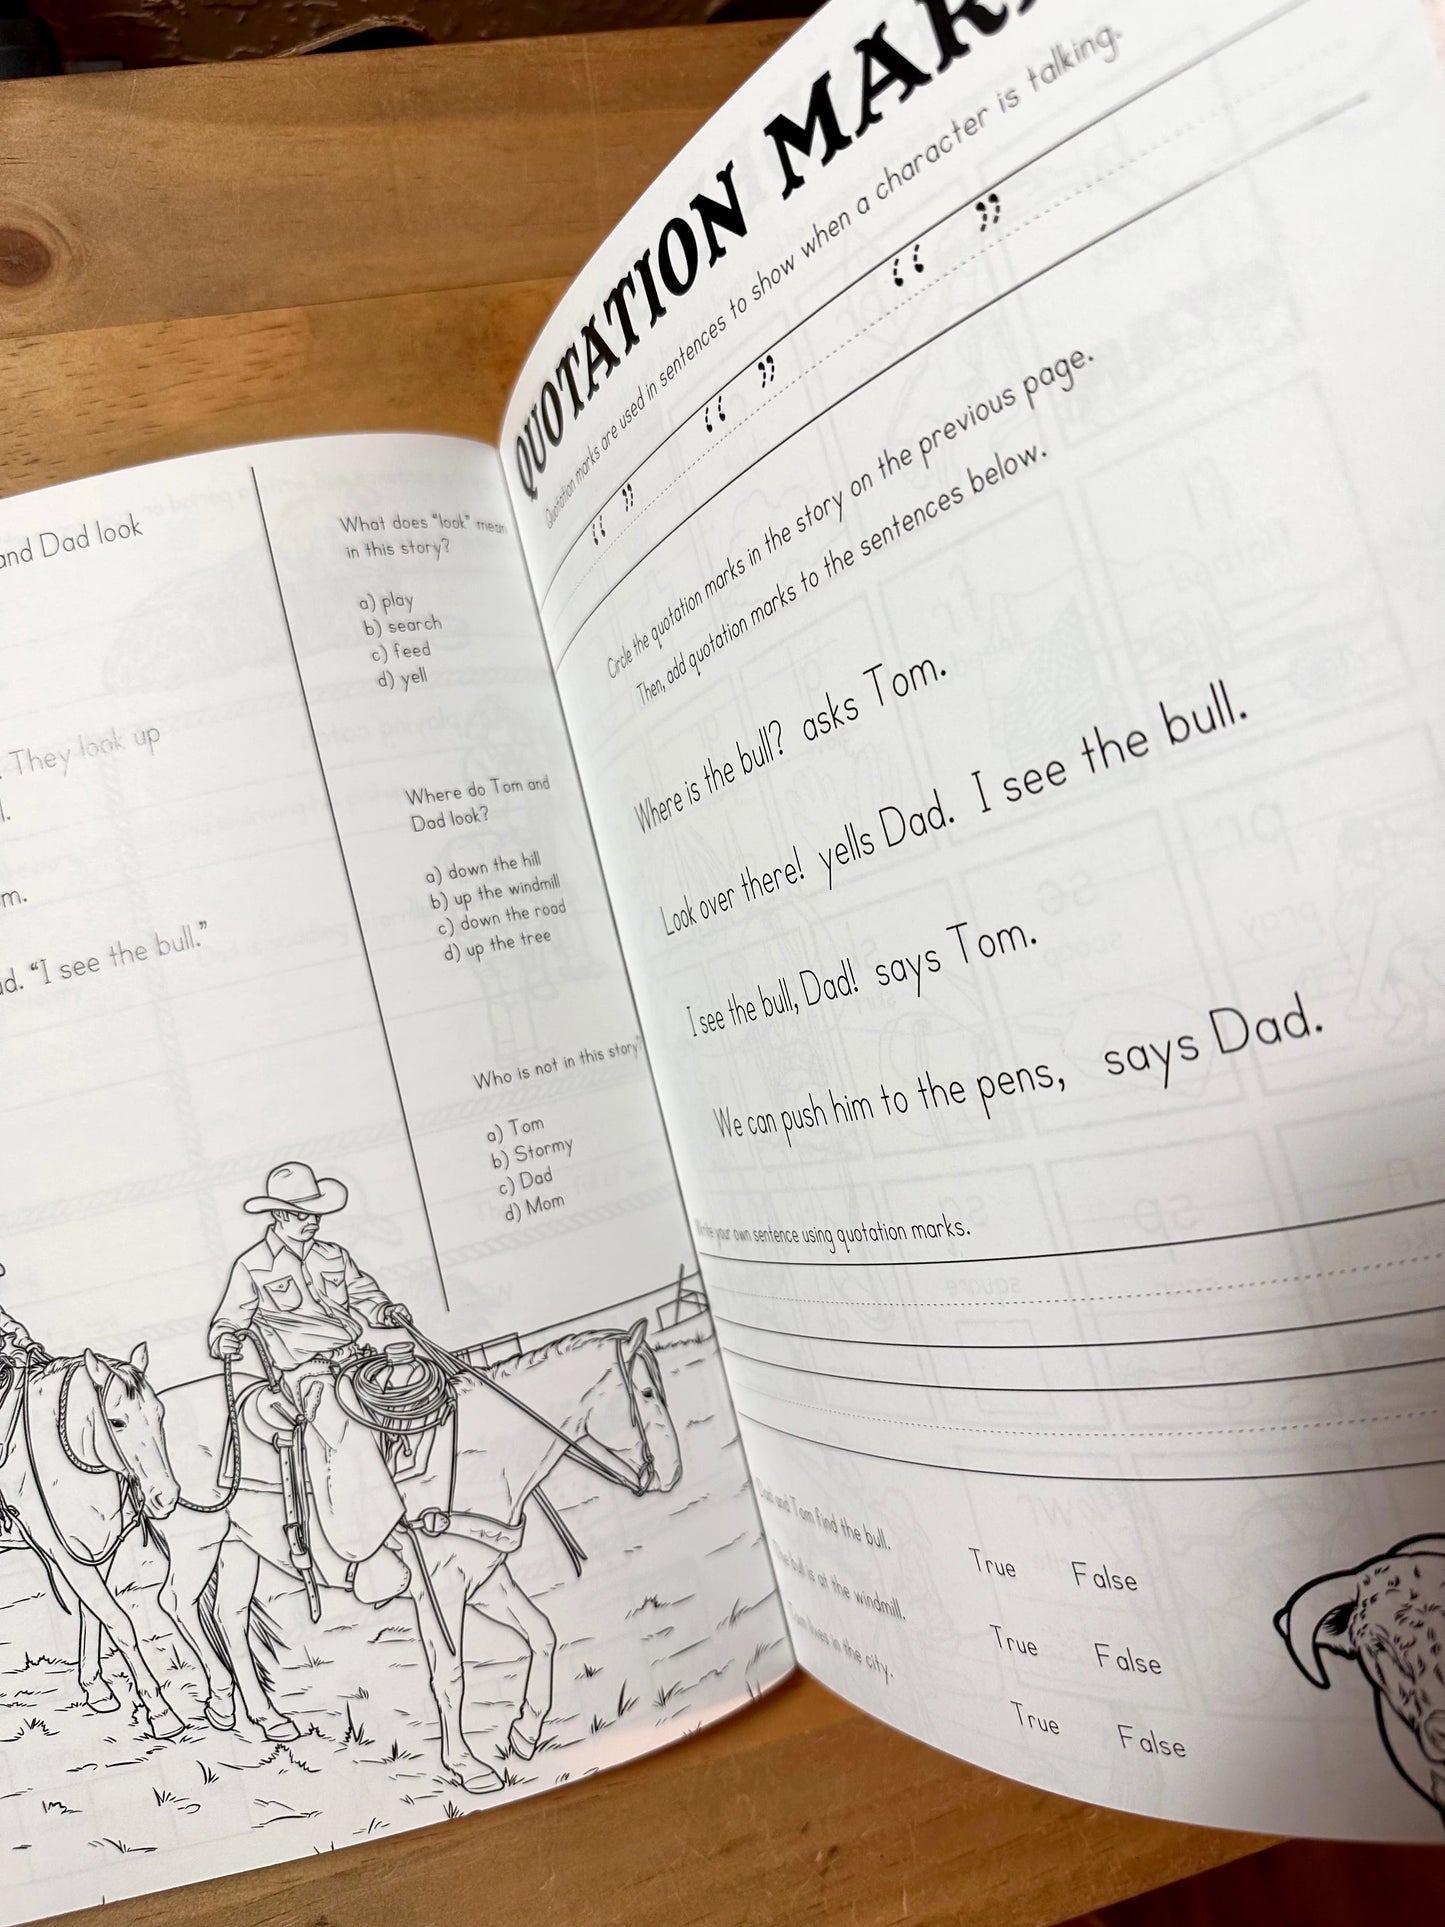 and Dad look
. They look up
l.
m.
ad. “I see the bull.”
What does “look” mean
in this story?
a) play
b) search
c) feed
d) yell
Where do Tom and
Dad look?
a) down the hill
b) up the windmill
c) down the road
d) up the tree
Who is not in this story?
a) Tom
b) Stormy
c) Dad
d) Mom
QUOTATION MAR
Quotation marks are used in sentences to show when a character is talking.
“ ” “ ” “ ”
Circle the quotation marks in the story on the previous page.
Then, add quotation marks to the sentences below.
Where is the bull? asks Tom.
Look over there! yells Dad. I see the bull.
I see the bull, Dad! says Tom.
We can push him to the pens, says Dad.
Write your own sentence using quotation marks.
and Tom find the bull. True False
bull is at the windmill. True False
Tom lives in the city. True False